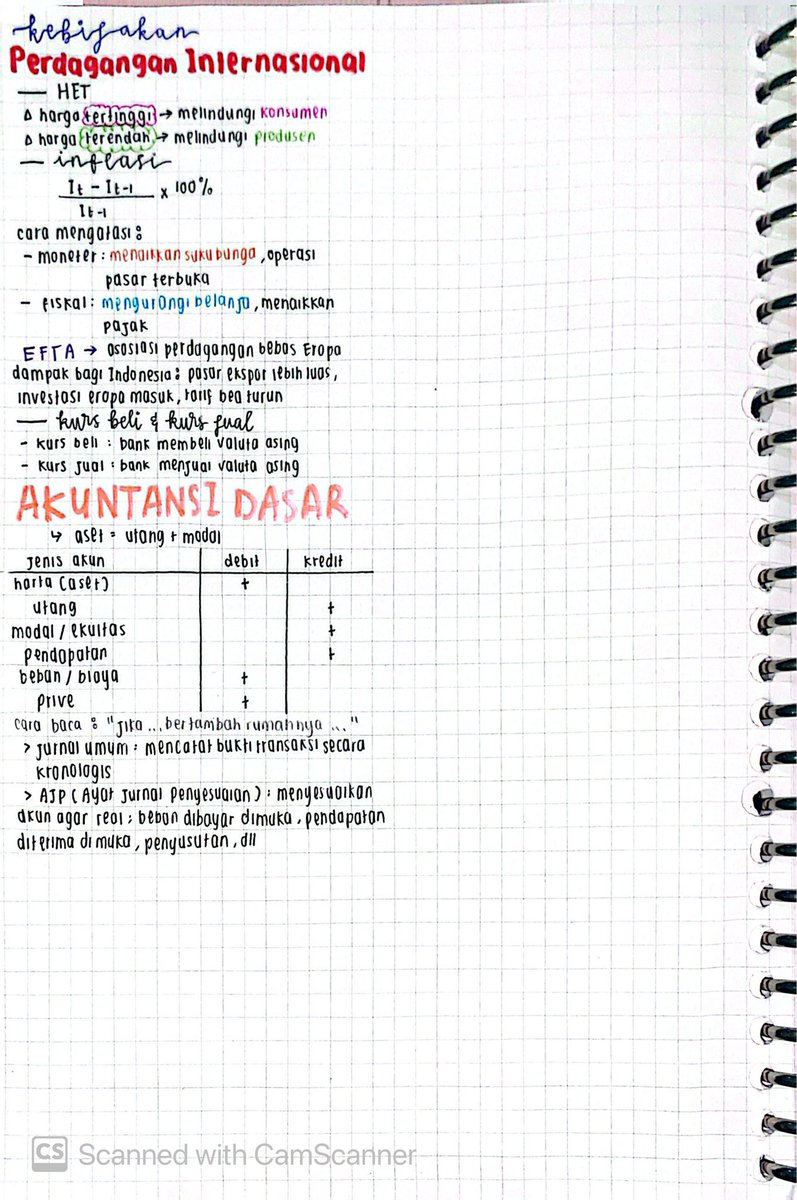 kebijakan
Perdagangan Internasional
— HET
∆ harga tertinggi → melindungi konsumen
∆ harga terendah → melindungi produsen
— inflasi
It - It-1 x 100%
It-1
cara mengatasi :
- moneter : menaikkan suku bunga , operasi
pasar terbuka
- fiskal : mengurangi belanja , menaikkan
pajak
EFTA → asosiasi perdagangan bebas Eropa
dampak bagi Indonesia : pasar ekspor lebih luas ,
investasi eropa masuk , tarif bea turun
— kurs beli & kurs jual
- kurs beli : bank membeli valuta asing
- kurs jual : bank menjual valuta asing
AKUNTANSI DASAR
↳ aset = utang + modal
jenis akun debit kredit
harta (aset) +
utang +
modal / ekuitas +
pendapatan +
beban / biaya +
prive +
cara baca : "jika ... bertambah rumahnya ..."
> jurnal umum : mencatat bukti transaksi secara
kronologis
> AJP (Ayat Jurnal Penyesuaian) : menyesuaikan
akun agar real ; beban dibayar dimuka , pendapatan
diterima di muka , penyusutan , dll
CS Scanned with CamScanner